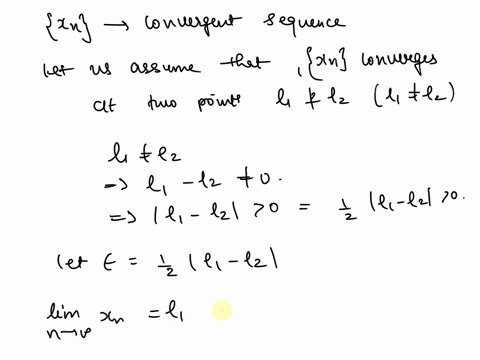 {xn} → convergent sequence
Let us assume that, {xn} converges
at two points l1 & l2 (l1 ≠ l2)
l1 ≠ l2
=> l1 - l2 ≠ 0.
=> |l1 - l2| > 0 = 1/2 |l1 - l2| > 0.
Let ϵ = 1/2 |l1 - l2|
lim n→ xn = l1